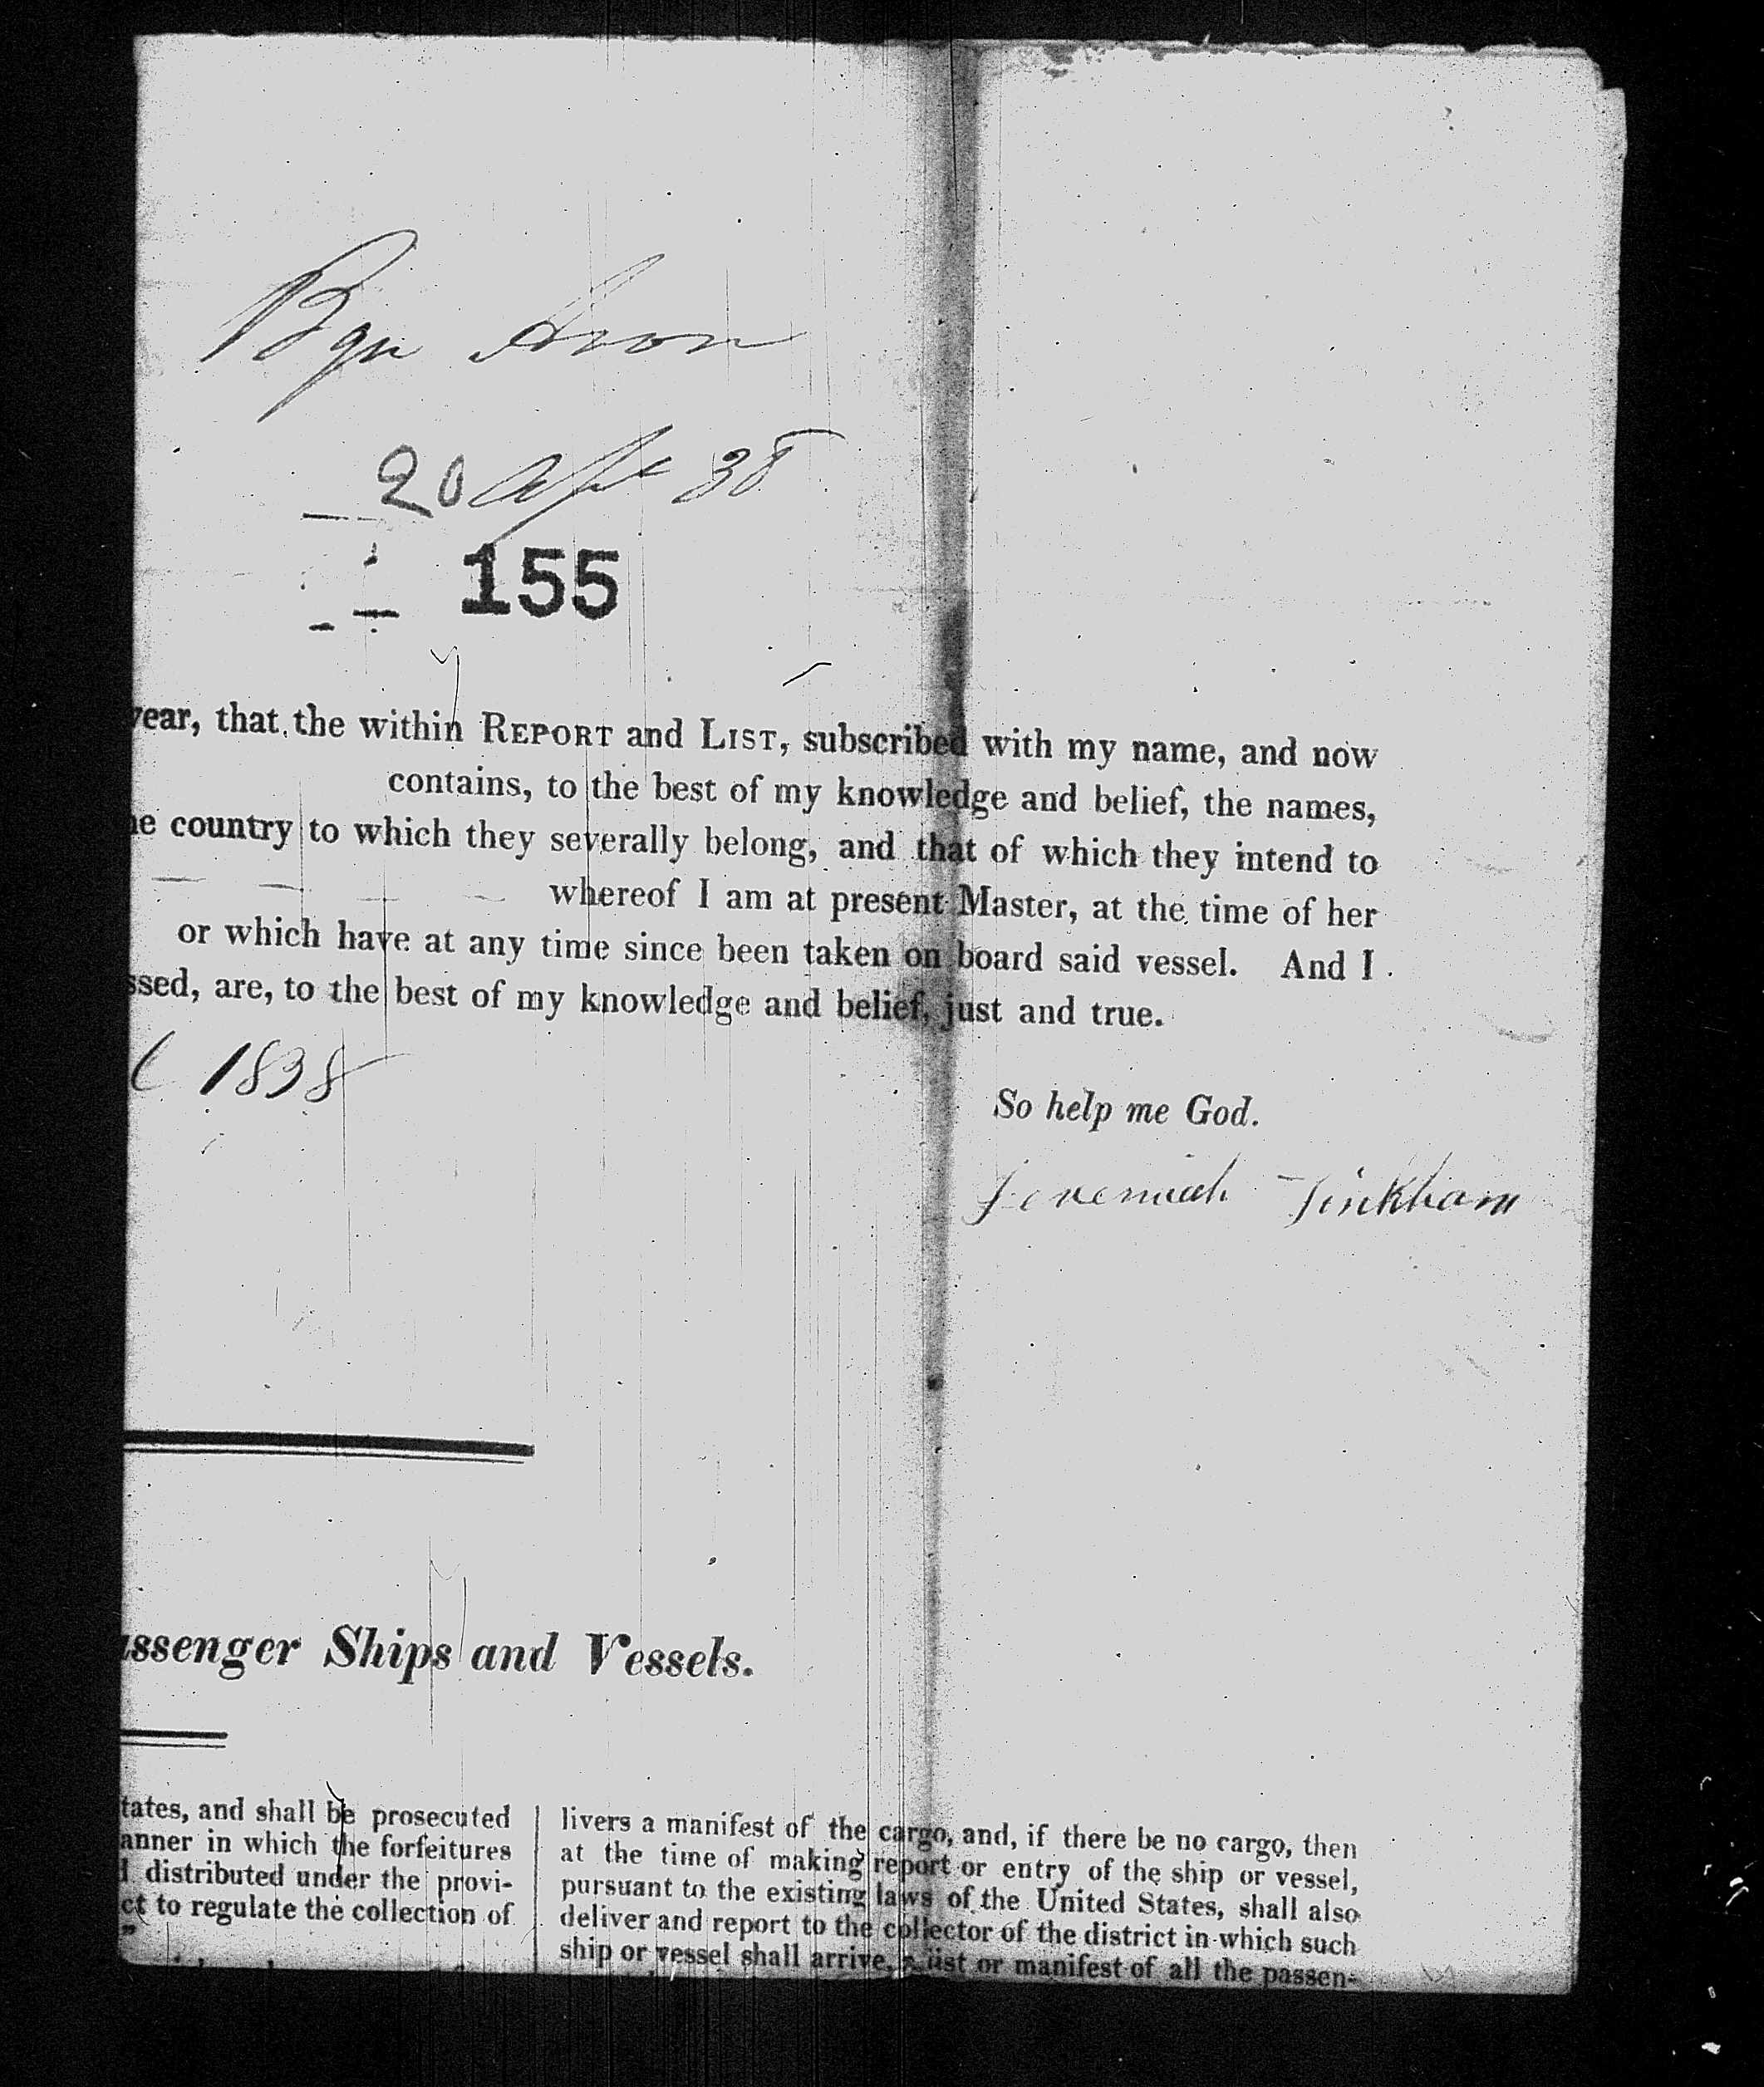 Bgn Avon
20 Apl 38
155
year, that the within REPORT and LIST, subscribed with my name, and now
contains, to the best of my knowledge and belief, the names,
he country to which they severally belong, and that of which they intend to
whereof I am at present Master, at the time of her
or which have at any time since been taken on board said vessel. And I
ssed, are, to the best of my knowledge and belief, just and true.
l 1838
So help me God.
Jeremiah Tinkham
assenger Ships and Vessels.
tates, and shall be prosecuted
anner in which the forfeitures
d distributed under the provi-
ct to regulate the collection of
”
livers a manifest of the cargo, and, if there be no cargo, then
at the time of making report or entry of the ship or vessel,
pursuant to the existing laws of the United States, shall also
deliver and report to the collector of the district in which such
ship or vessel shall arrive, a list or manifest of all the passen-